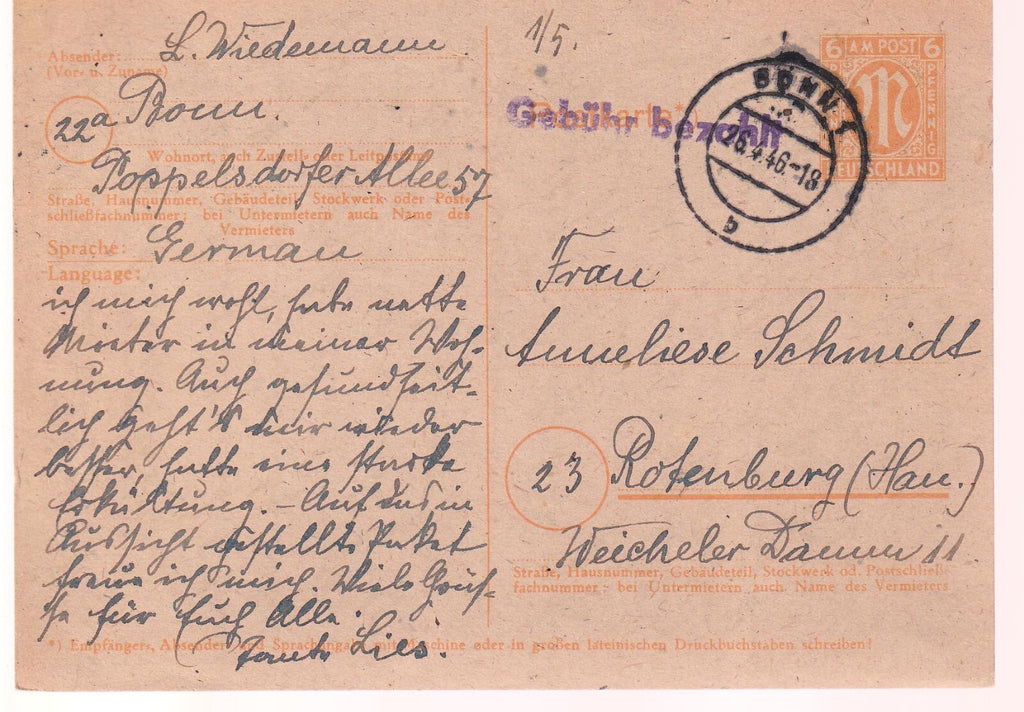 Absender: L. Wiedemann
(Vor- u. Zuname)
22a Bonn.
Wohnort, auch Zustell- oder Leitpostamt
Poppelsdorfer Allee 57
Straße, Hausnummer, Gebäudeteil, Stockwerk oder Post-
schließfachnummer; bei Untermietern auch Name des
Vermieters
Sprache: German
Language:
ich mich wohl, habe nette
Mieter in meiner Woh-
nung. Auch gesundheit-
lich geht's mir wieder
besser, hatte eine starke
Erkältung. – Auf das in
Aussicht gestellte Paket
freue ich mich. Viele Grüs-
se für Euch Alle.
Tante Lies.
1/5.
Postkarte*
Gebühr bezahlt
BONN 1
26.4.46.-18
b
6 AM POST 6
PFENNIG
M
DEUTSCHLAND
Frau
Anneliese Schmidt
23 Rotenburg (Han.)
Weicheler Damm 11
Straße, Hausnummer, Gebäudeteil, Stockwerk od. Postschließ-
fachnummer; bei Untermietern auch Name des Vermieters
*) Empfänger, Absender und Sprachangabe mit Maschine oder in großen lateinischen Druckbuchstaben schreiben!